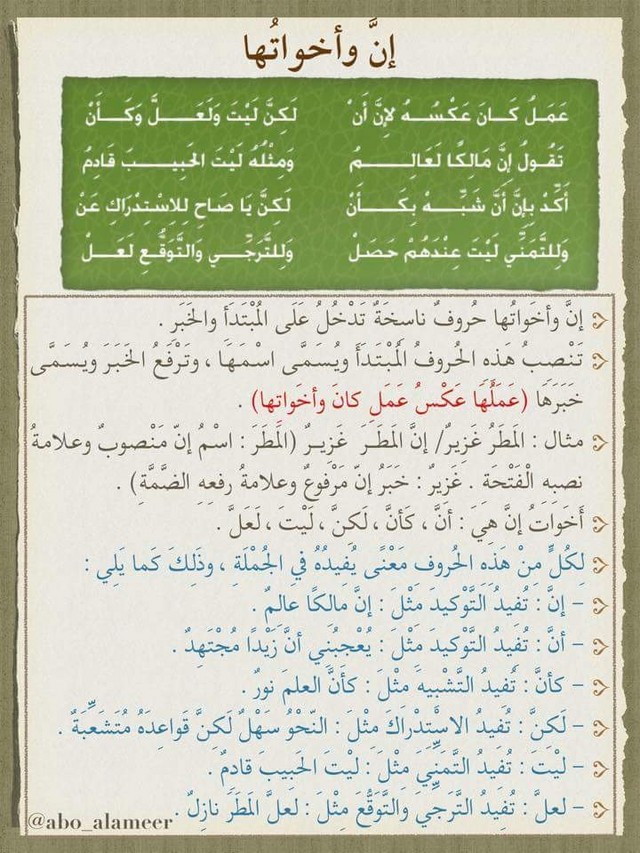 إنَّ وأخواتُها
عَمَلُ كَـانَ عَكْسُـهُ لإِنَّ أَنْ لَكِنَّ لَيْتَ وَلَعَـلَّ وَكَـأَنْ
تَقُولُ إنَّ مَالِكًا لَعَالِـمُ وَمِثْلُهُ لَيْتَ الحَبِيـبَ قَادِمُ
أَكِّدْ بِإِنَّ أَنَّ شَبِّـهْ بِكَـأَنْ لَكِنَّ يَا صَاحِ لِلاسْتِدْرَاكِ عَنْ
وَلِلتَّمَنِّي لَيْتَ عِنْدَهُمْ حَصَلْ وَلِلتَّرَجِّـي وَالتَّوَقُّـعِ لَعَـلْ
إنَّ وأخَواتُها حُروفٌ ناسخَةٌ تَدْخُلُ عَلَى المُبْتَدَأ والخَبَر .
تَنْصبُ هَذه الحُروفُ المُبْتَدَأَ ويُسَمَى اسْمَهَا ، وتَرْفَعُ الخَبَرَ ويُسَمَى
خَبَرَهَا (عَمَلُهَا عَكْسُ عَمَلِ كانَ وأخَواتِها) .
مثال : المَطَرُ غَزيرٌ/ إنَّ المَطَـرَ غَزيـرٌ (المَطَرَ : اسْمُ إنّ مَنْصوبٌ وعلامةُ
نصبه الْفَتْحَةِ . غَزيرٌ : خَبَرُ إنّ مَرْفوعٌ وعلامةُ رفعِهِ الضمَّةِ) .
أَخَوَاتُ إنَّ هِيَ : أنَّ ، كَأنَّ ، لَكنَّ ، لَيْتَ ، لَعَلَّ .
لِكُلٍّ مِنْ هَذِهِ الحُروفِ مَعْنًى يُفيدُهُ في الجُمْلَةِ ، وذَلِكَ كَما يَلِي :
- إنَّ : تُفيدُ التَّوْكيدَ مثْلَ : إنَّ مالكًا عالمٌ .
- أنَّ : تُفيدُ التَّوْكيدَ مثْلَ : يُعْجبُنِي أنَّ زَيْدًا مُجْتَهِدٌ .
- كأنَّ : تُفيدُ التَّشْبيهَ مثْلَ : كأنَّ العلمَ نورٌ .
- لَكنَّ : تُفيدُ الاسْتدْراكَ مثْلَ : النّحْوُ سَهْلٌ لَكنَّ قَواعدَهُ مُتَشَعِّبَةٌ .
- ليْتَ : تُفيدُ التَّمَنِّيَ مثْلَ : ليتَ الحَبيبَ قادمٌ .
- لعلَّ : تُفيدُ التَّرَجيَ والتَّوقُّعَ مثْلَ : لعلَّ المَطَرَ نازلٌ .
@abo_alameer